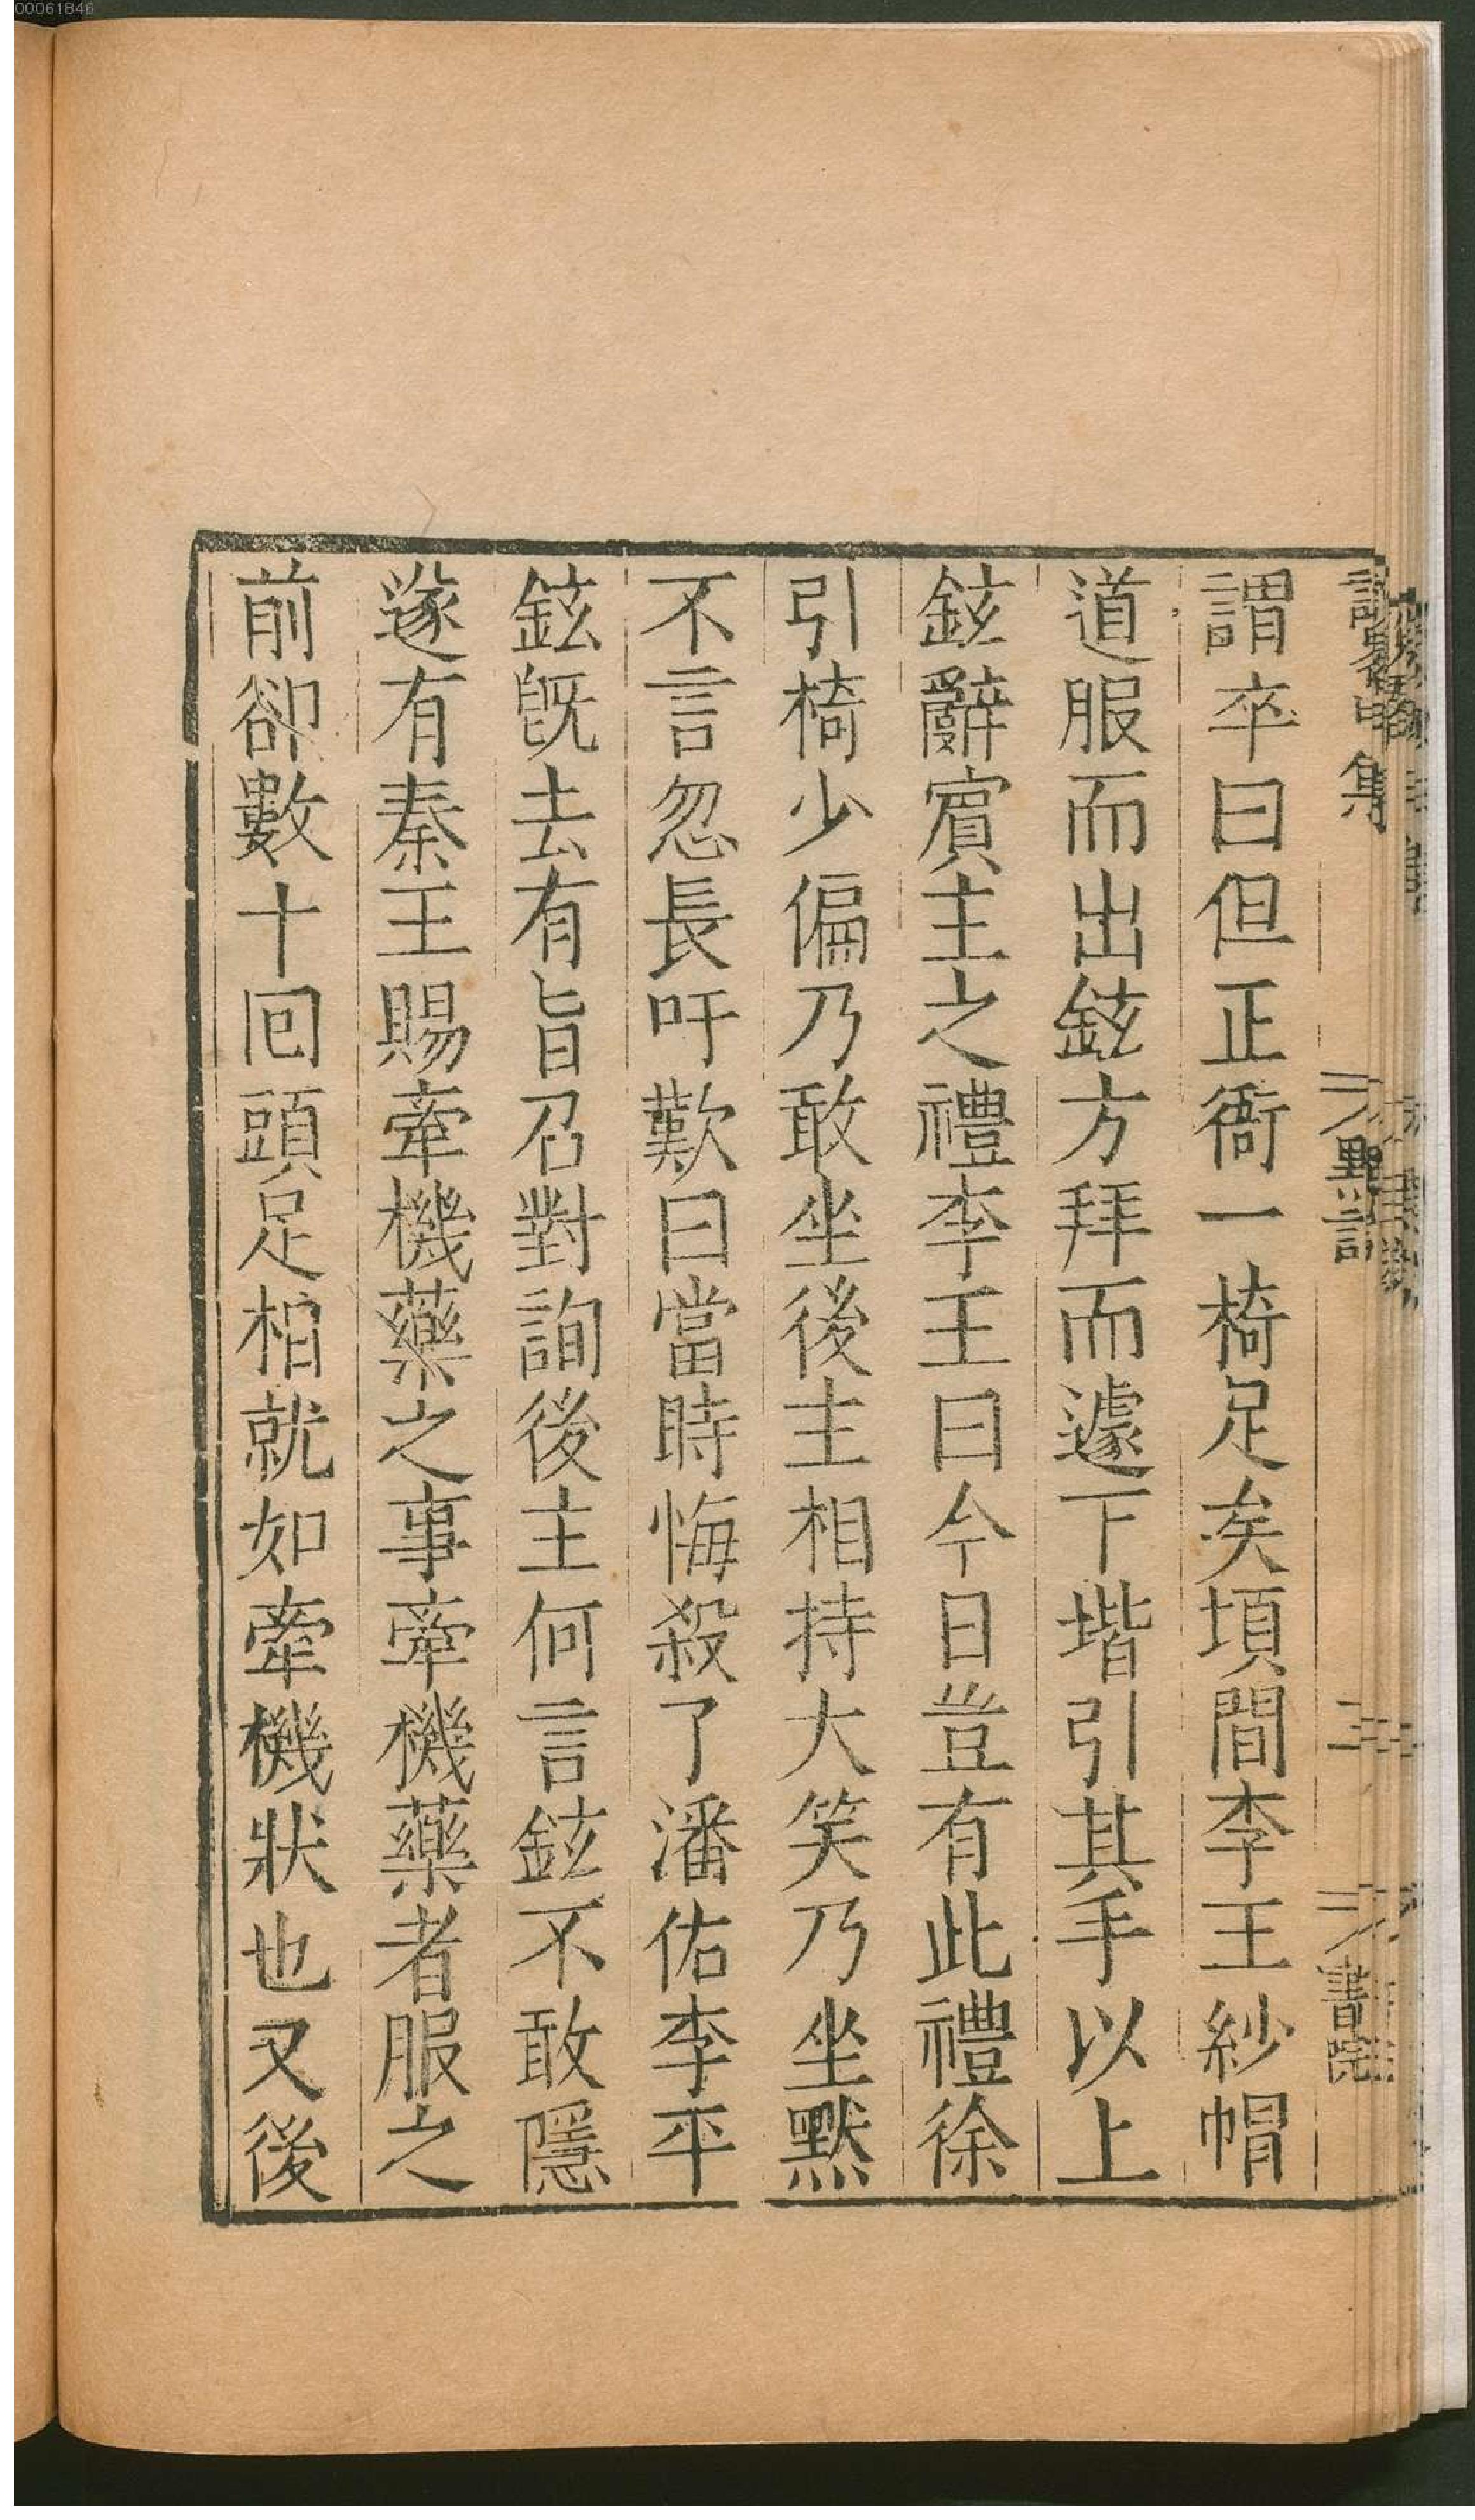 00061846
謂卒曰但正衙一椅足矣頃間李王紗帽
道服而出鉉方拜而遽下堦引其手以上
鉉辭賓主之禮李王曰今日豈有此禮徐
引椅少偏乃敢坐後主相持大笑乃坐黙
不言忽長吁歎曰當時悔殺了潘佑李平
鉉旣去有旨召對詢後主何言鉉不敢隱
遂有秦王賜牽機藥之事牽機藥者服之
前卻數十回頭足相就如牽機狀也又後